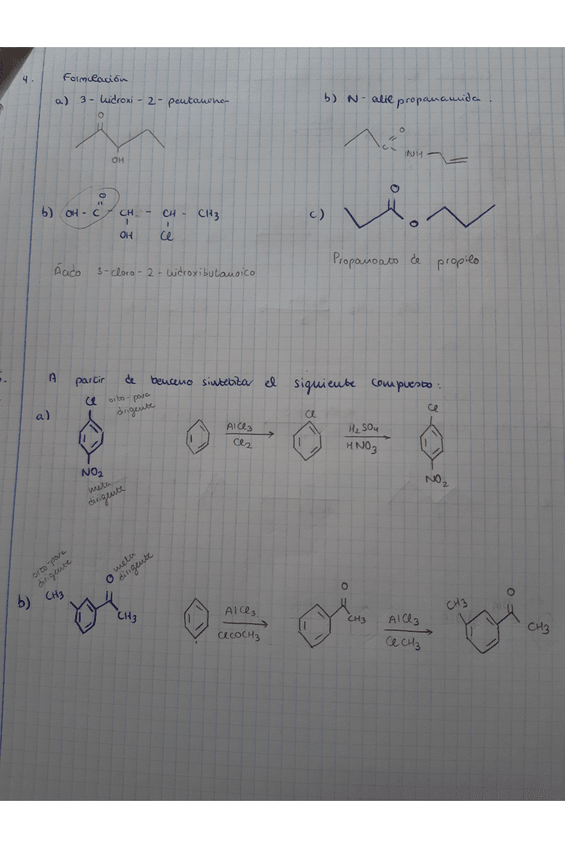 4. Formulación
a) 3-hidroxi-2-pentanona
b) N-alilpropanamida.
O
OH
O
C
NH
b) OH - C - CH - CH - CH3
O
OH Cl
c) O
O
Ácido 3-cloro-2-hidroxibutanoico
Propanoato de propilo
5. A partir de benceno sintetiza el siguiente compuesto:
a) Cl orto-para dirigente
NO2
meta dirigente
AlCl3
Cl2
Cl
H2SO4
HNO3
Cl
NO2
b) orto-para dirigente
meta dirigente
CH3 O
CH3
AlCl3
ClCOCH3
O
CH3
AlCl3
ClCH3
CH3 O
CH3